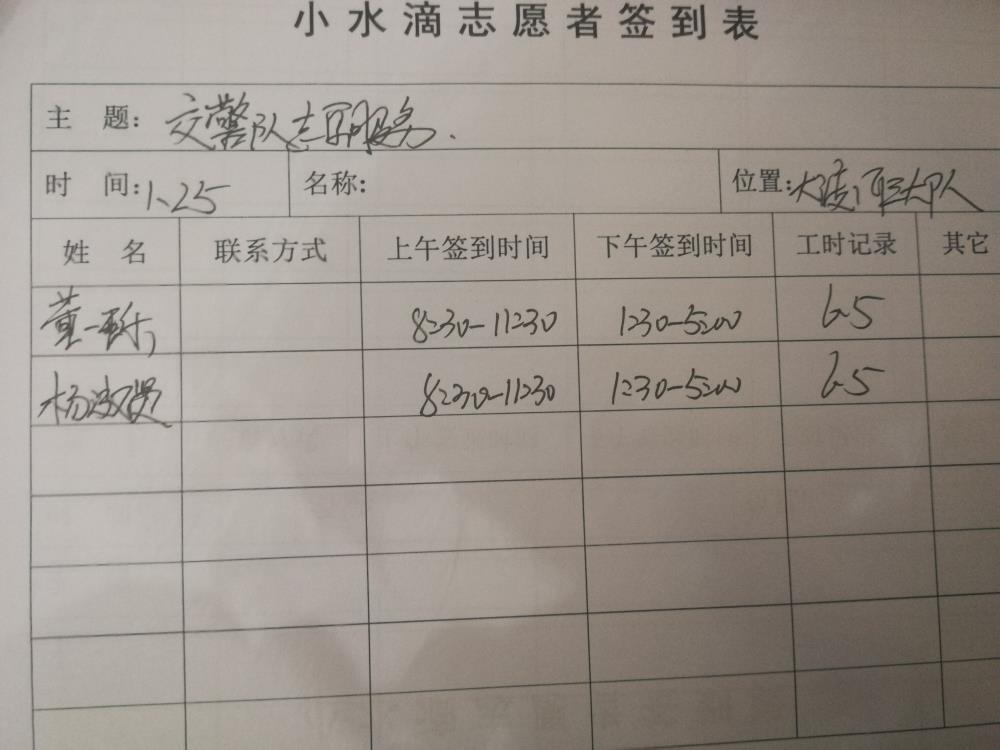 小水滴志愿者签到表
主 题: 交警队志愿服务.
时 间: 1.25 名称: 位置: 大队
姓 名 联系方式 上午签到时间 下午签到时间 工时记录 其它
董一 8:30-11:30 1:30-5:00 6.5
杨淑贤 8:30-11:30 1:30-5:00 6.5